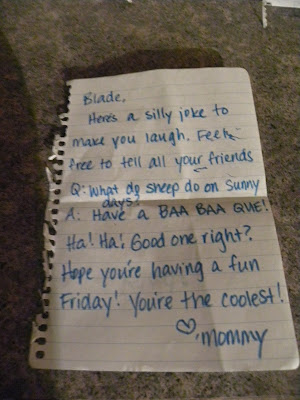 Blade,
Here's a silly joke to
make you laugh. Feel
free to tell all your friends
Q: What do sheep do on sunny
days?
A: Have a BAA BAA QUE!
Ha! Ha! Good one right?
Hope you're having a fun
Friday! You're the coolest!
♡, Mommy